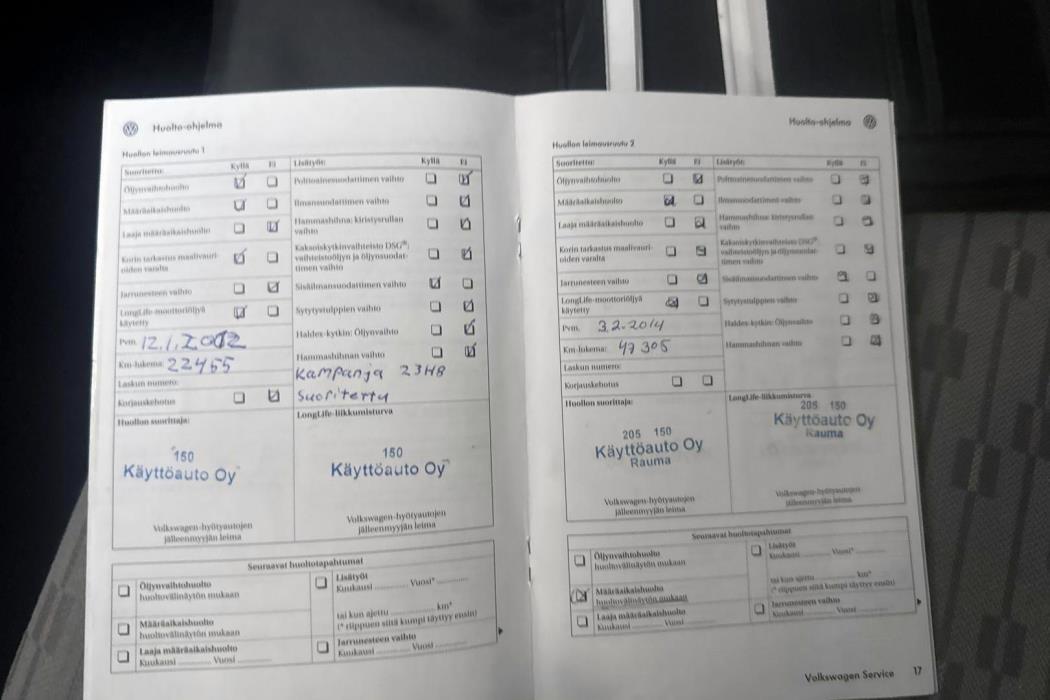 Huolto-ohjelma
Huollon leimausruutu 1
Suoritettu: Kyllä Ei Lisätyöt: Kyllä Ei
Öljynvaihtohuolto
Määräaikaishuolto
Laaja määräaikaishuolto
Korin tarkastus maalivauri-
oiden varalta
Jarrunesteen vaihto
LongLife-moottoriöljyä
käytetty
Pvm. 12.1.2012
Km-lukema: 22455
Laskun numero:
Korjauskehotus
Polttoainesuodattimen vaihto
Ilmansuodattimen vaihto
Hammashihna: kiristysrullan
vaihto
Kaksoiskytkinvaihteisto DSG®:
vaihteistoöljyn ja öljynsuodat-
timen vaihto
Sisäilmansuodattimen vaihto
Sytytystulppien vaihto
Haldex-kytkin: Öljynvaihto
Hammashihnan vaihto
Kampanja 23H8
Suoritettu
Huollon suorittaja:
150
Käyttöauto Oy
Volkswagen-hyötyautojen
jälleenmyyjän leima
LongLife-liikkumisturva
150
Käyttöauto Oy
Volkswagen-hyötyautojen
jälleenmyyjän leima
Seuraavat huoltotapahtumat
Öljynvaihtohuolto
huoltovälinäytön mukaan
Määräaikaishuolto
huoltovälinäytön mukaan
Laaja määräaikaishuolto
Kuukausi ............ Vuosi ............
Lisätyöt
Kuukausi ............ Vuosi* ............
tai kun ajettu ............ km*
(* riippuen siitä kumpi täyttyy ensin)
Jarrunesteen vaihto
Kuukausi ............ Vuosi ............
Huolto-ohjelma
Huollon leimausruutu 2
Suoritettu: Kyllä Ei Lisätyöt: Kyllä Ei
Öljynvaihtohuolto
Määräaikaishuolto
Laaja määräaikaishuolto
Korin tarkastus maalivauri-
oiden varalta
Jarrunesteen vaihto
LongLife-moottoriöljyä
käytetty
Pvm. 3.2.2014
Km-lukema: 47305
Laskun numero:
Korjauskehotus
Polttoainesuodattimen vaihto
Ilmansuodattimen vaihto
Hammashihna: kiristysrullan
vaihto
Kaksoiskytkinvaihteisto DSG®:
vaihteistoöljyn ja öljynsuodat-
timen vaihto
Sisäilmansuodattimen vaihto
Sytytystulppien vaihto
Haldex-kytkin: Öljynvaihto
Hammashihnan vaihto
Huollon suorittaja:
205 150
Käyttöauto Oy
Rauma
Volkswagen-hyötyautojen
jälleenmyyjän leima
LongLife-liikkumisturva
205 150
Käyttöauto Oy
Rauma
Volkswagen-hyötyautojen
jälleenmyyjän leima
Seuraavat huoltotapahtumat
Öljynvaihtohuolto
huoltovälinäytön mukaan
Määräaikaishuolto
huoltovälinäytön mukaan
Laaja määräaikaishuolto
Kuukausi ............ Vuosi ............
Lisätyöt
Kuukausi ............ Vuosi* ............
tai kun ajettu ............ km*
(* riippuen siitä kumpi täyttyy ensin)
Jarrunesteen vaihto
Kuukausi ............ Vuosi ............
Volkswagen Service 17